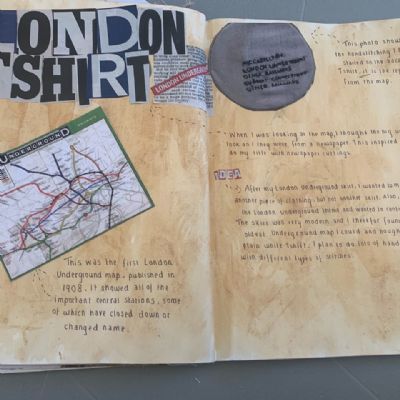 LONDON
TSHIRT
LONDON UNDERGROUND
UNDERGROUND
This was the first London
Underground map, published in
1908. It showed all of the
important central stations, some
of which have closed down or
changed name.
This photo show
the handstitching I
started on the bac
Tshirt. It is the ke
from the map.
When I was looking at the map, I thought the key
look as if they were from a newspaper. This inspired
on my title with newspaper cuttings.
IDEA
After my London Underground skirt, I wanted to m
another piece of clothing, but not another skirt. Also,
the London Underground theme and wanted to contra
The skirt was very modern and I therefore foun
oldest Underground map I could and bough
plain white Tshirt. I plan to do lots of hand
with different types of stitches.